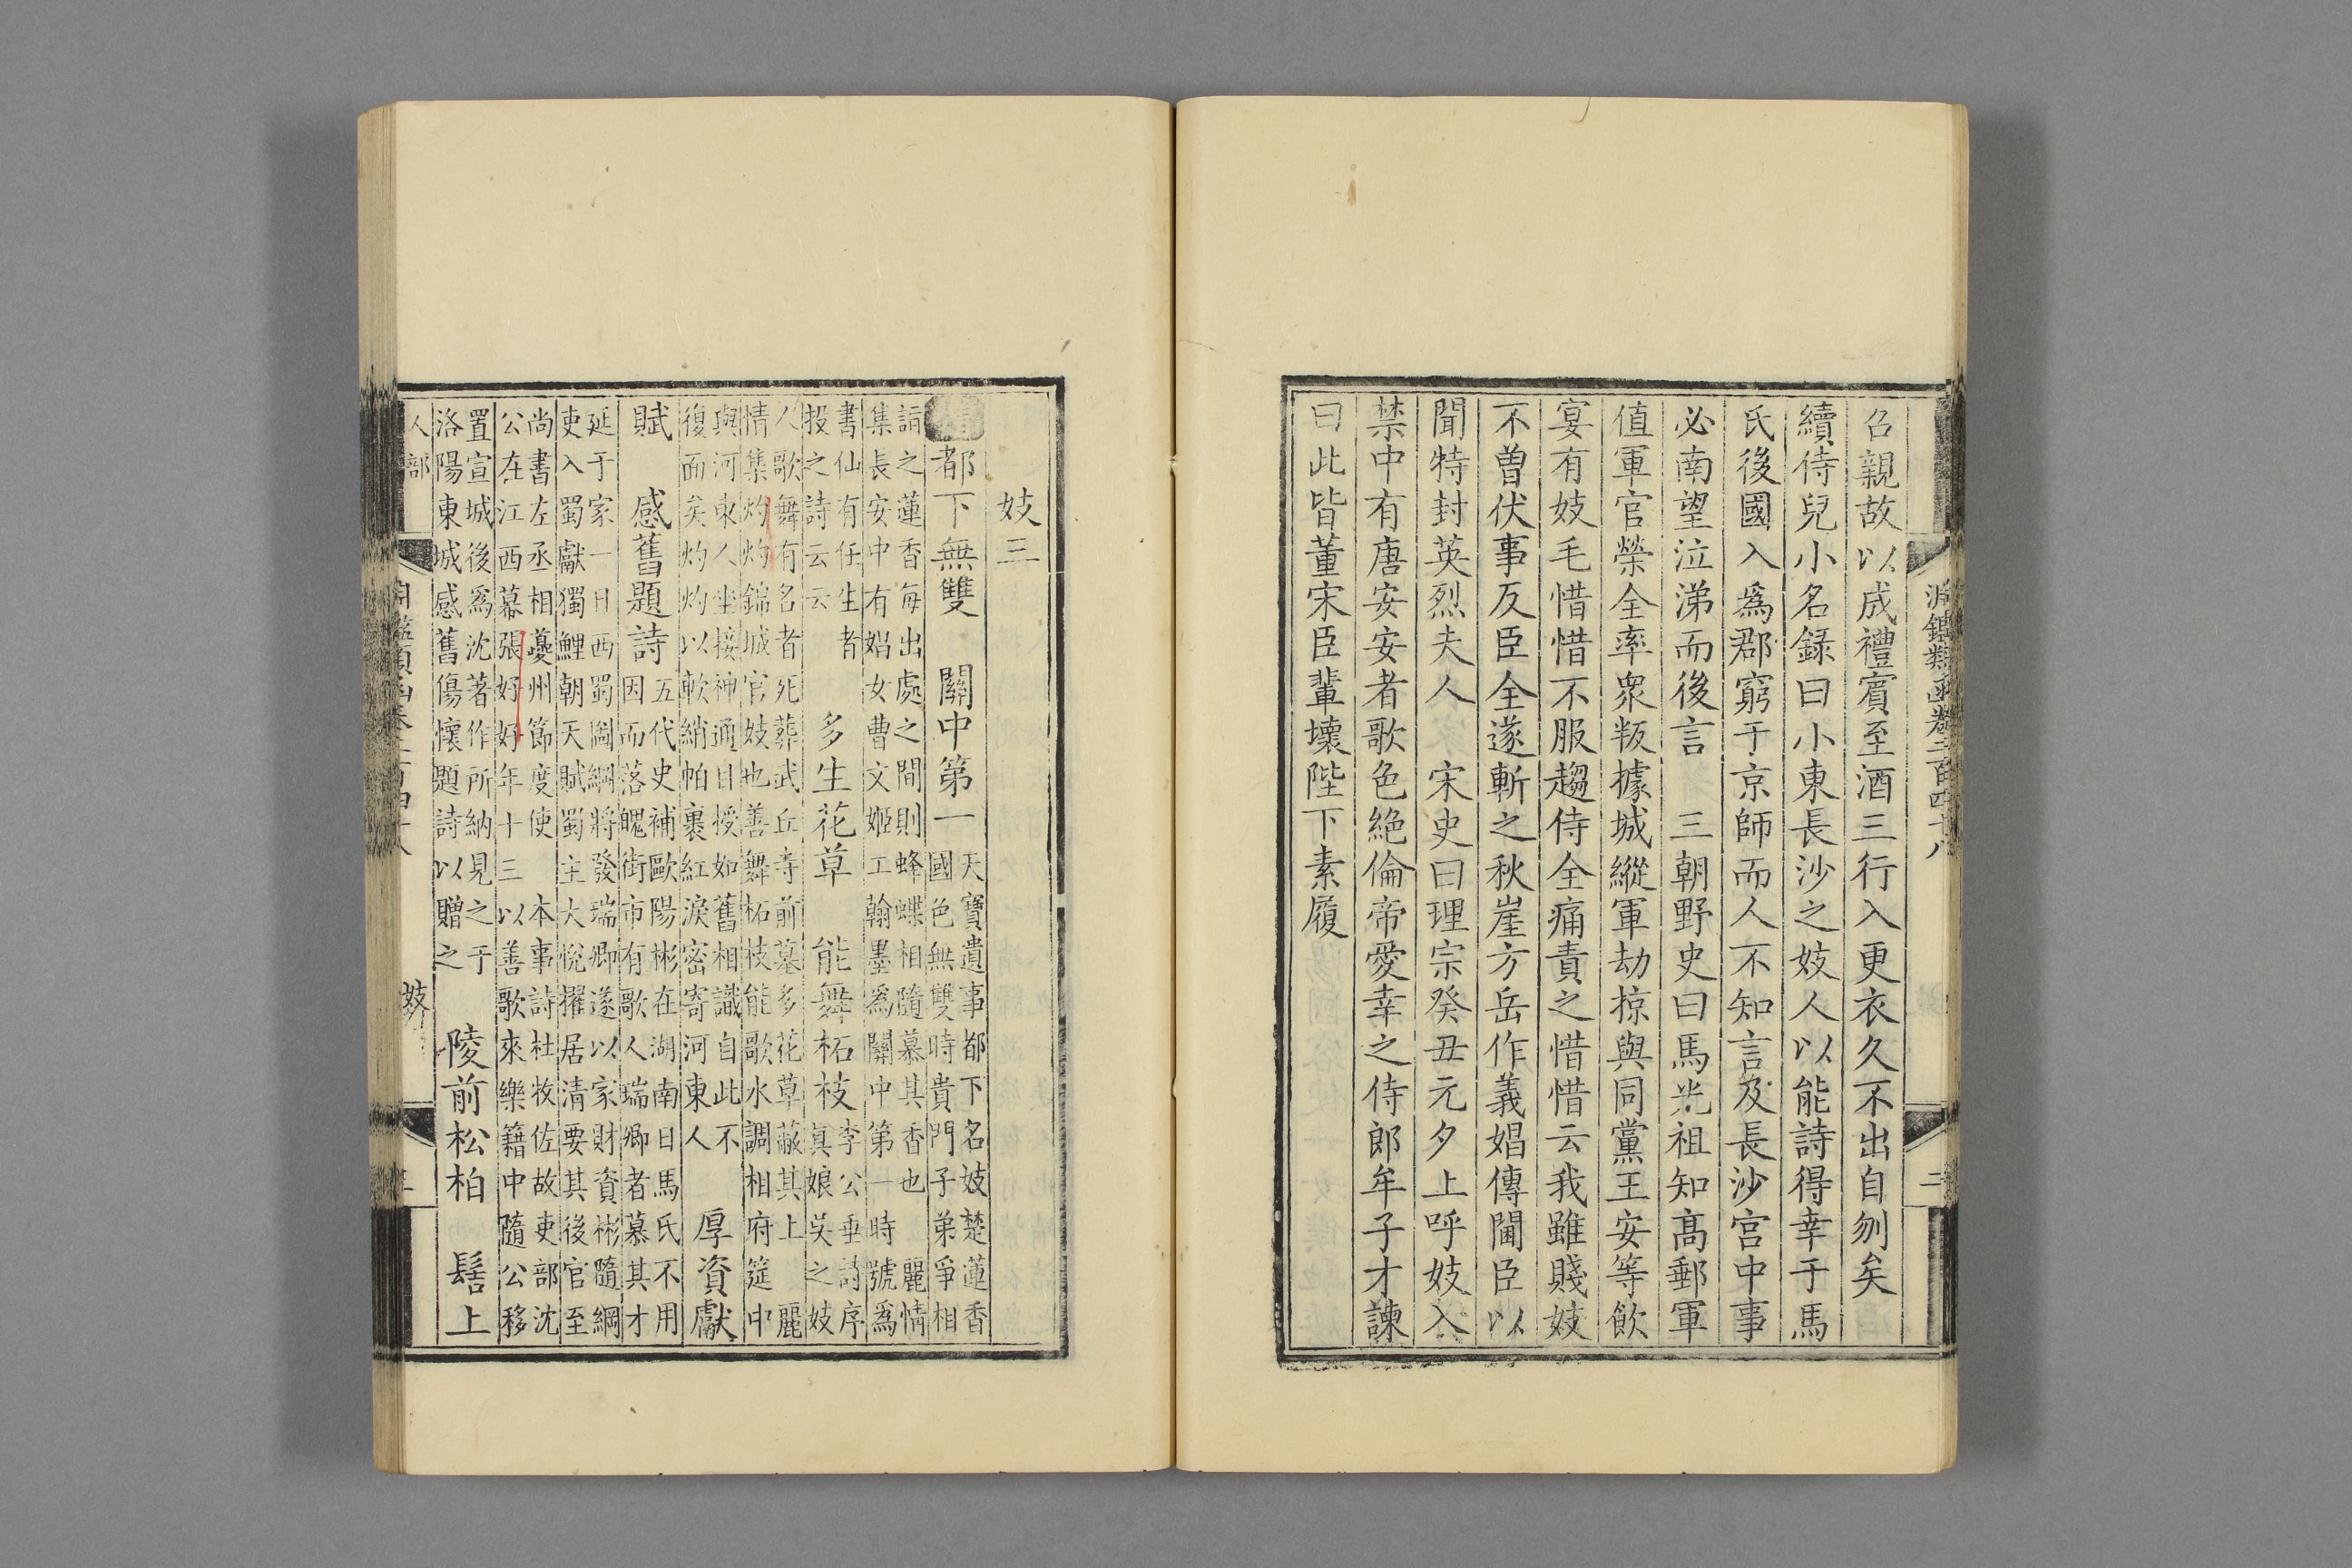 淵鑑類函卷三百四十八
二
召親故以成禮賓至酒三行入更衣久不出自刎矣
續侍兒小名録曰小東長沙之妓人以能詩得幸于馬
氏後國入爲郡窮于京師而人不知言及長沙宮中事
必南望泣涕而後言　三朝野史曰馬光祖知高郵軍
值軍官榮全率衆叛據城縱軍劫掠與同黨王安等飲
宴有妓毛惜惜不服趨侍全痛責之惜惜云我雖賤妓
不曽伏事反臣全遂斬之秋崖方岳作義娼傳閫臣以
聞特封英烈夫人　宋史曰理宗癸丑元夕上呼妓入
禁中有唐安安者歌色絶倫帝愛幸之侍郎牟子才諫
曰此皆董宋臣輩壊陛下素履
妓三
都下無雙　關中第一天寶遺事都下名妓楚蓮香
國色無雙時貴門子弟爭相
詣之蓮香每出處之間則蜂蝶相隨慕其香也　麗情
集長安中有娼女曹文姬工翰墨爲關中第一時號爲
書仙有任生者
投之詩云云
多生花草　能舞柘枝李公垂詩序
眞娘吳之妓
人歌舞有名者死葬武丘寺前墓多花草蔽其上　麗
情集灼灼錦城官妓也善舞柘枝能歌水調相府筵中
與河東人坐接神通目授如舊相識自此不
復面矣灼灼以軟綃帕裹紅淚密寄河東人
厚資獻
賦　感舊題詩五代史補歐陽彬在湖南日馬氏不用
因而落魄街市有歌人瑞卿者慕其才
延于家一日西蜀圖綱將發瑞卿遂以家財資彬隨綱
吏入蜀獻獨鯉朝天賦蜀主大悅擢居清要其後官至
尚書左丞相夔州節度使　本事詩杜牧佐故吏部沈
公在江西幕張好好年十三以善歌來樂籍中隨公移
置宣城後爲沈著作所納見之于
洛陽東城感舊傷懷題詩以贈之
陵前松柏　髻上
人部
妓